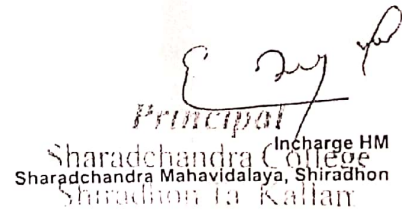 Principal
Incharge HM
Sharadchandra College
Sharadchandra Mahavidalaya, Shiradhon
Shiradhon ta Kallam